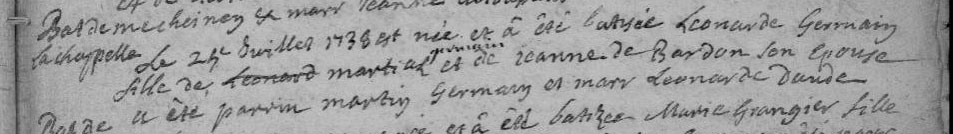 et marr Jeanne
Bat de mecheiney
la chappelle Le 25e Juillet 1738 est née et â été batisée Leonarde Germain
fille de Leonard martial germain et de jeanne de Bardon son Epouse
a été parrin martin Germain et marr Leonarde Daude
Bat de et â été batizée Marie Grangier fille